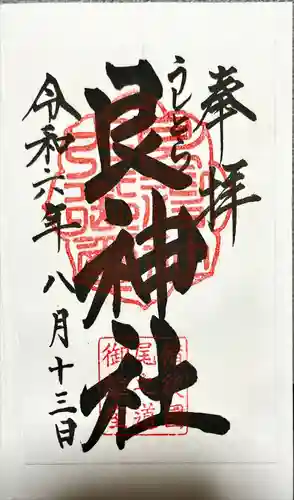 奉拝
うしとら
艮神社
令和六年八月十三日